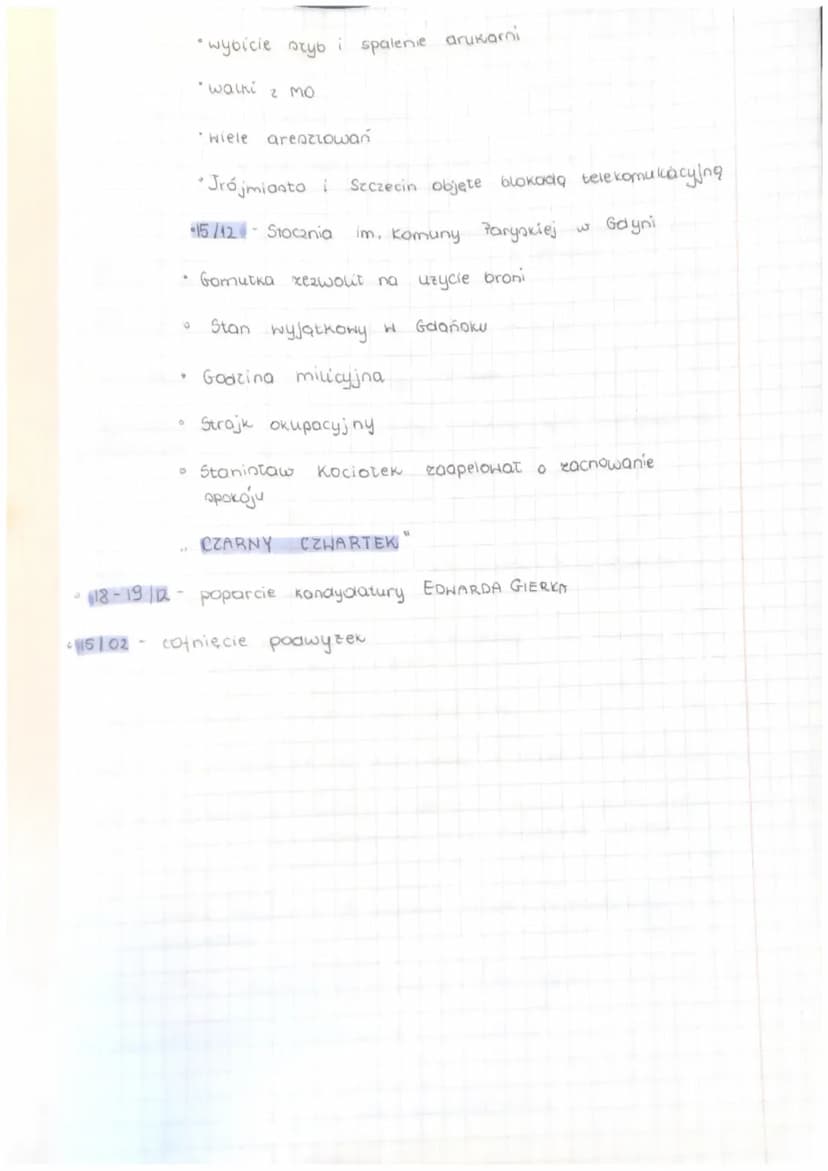 • wybicie szyb i spalenie drukarni
• walki z MO
• wiele aresztowań
• Trójmiasto i Szczecin objęte blokadą telekomukacyjną
• 15/12 - Stocznia im. Komuny Paryskiej w Gdyni
• Gomułka zezwolił na użycie broni
• Stan wyjątkowy w Gdańsku
• Godzina milicyjna
• Strajk okupacyjny
• Stanisław Kociołek zaapelował o zachowanie
spokoju
„ CZARNY CZWARTEK"
• 18-19/12 - poparcie kandydatury EDWARDA GIERKA
• 15/02 - cofnięcie podwyżek